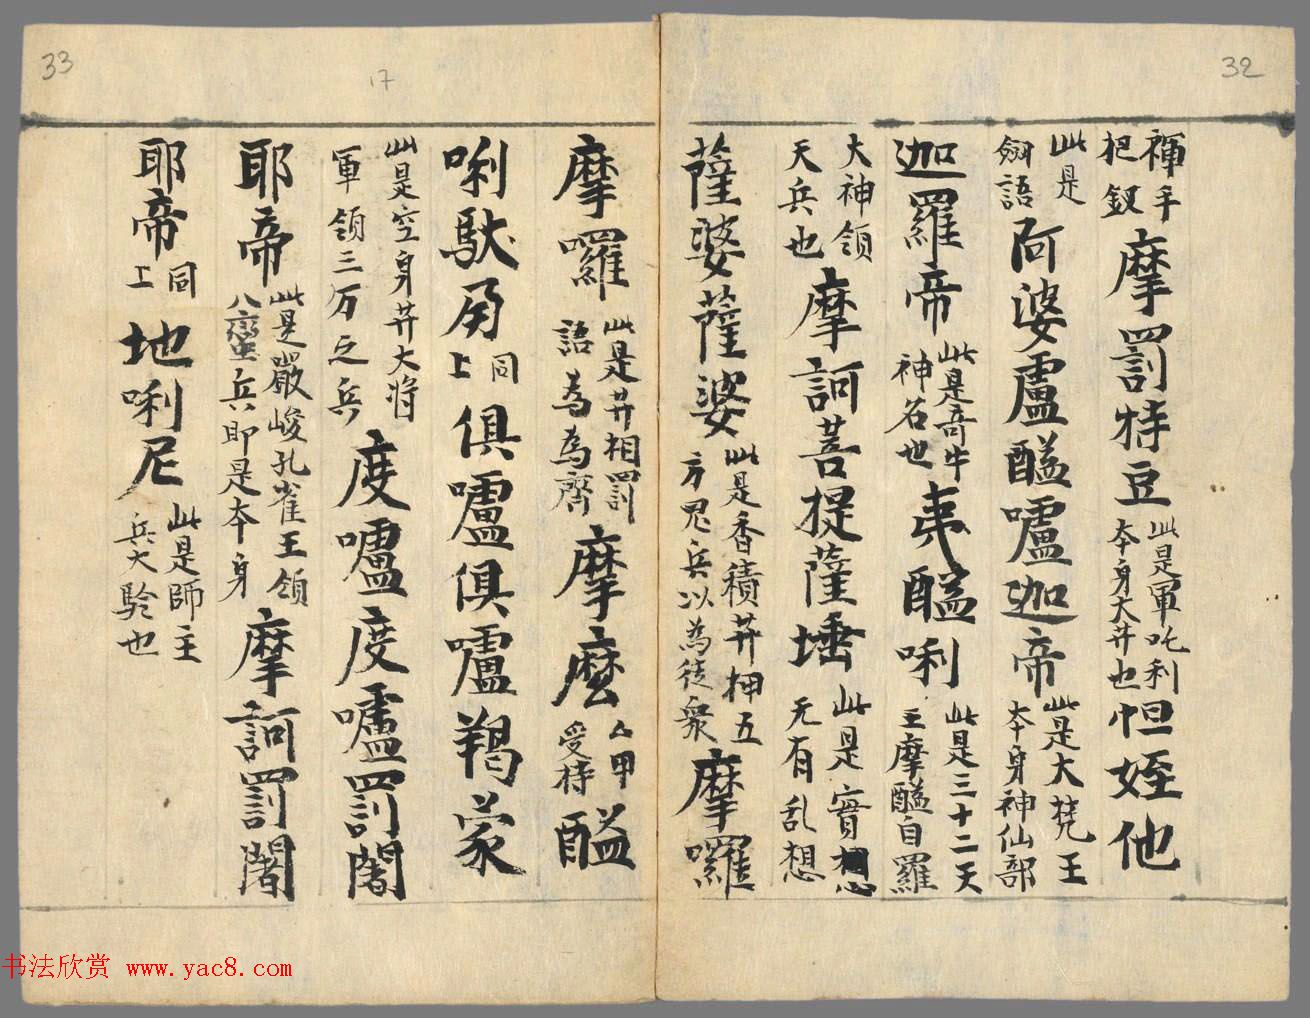 32
褌手
把釵
摩罰特豆
此是軍吒利
本身大井也
怛姪他
此是
劒語
阿婆盧醯嚧迦帝
此是大梵王
本身神仙部
迦羅帝
此是奇牛
神名也
夷醯唎
此是三十二天
王摩醯自羅
大神領
天兵也
摩訶菩提薩埵
此是實想
无有乱想
薩婆薩婆
此是香積井押五
方鬼兵以為徒衆
摩囉
33
17
摩囉
此是井相罰
語為為齊
摩麼
厶甲
受持
醯
唎馱
同
上
俱嚧俱嚧羯蒙
此是空身井大将
軍領三万之兵
度嚧度嚧罰闍
耶帝
此是嚴峻孔雀王領
八蠻兵即是本身
摩訶罰闍
耶帝
同
上
地唎尼
此是師主
兵大驗也
书法欣赏 www.yac8.com